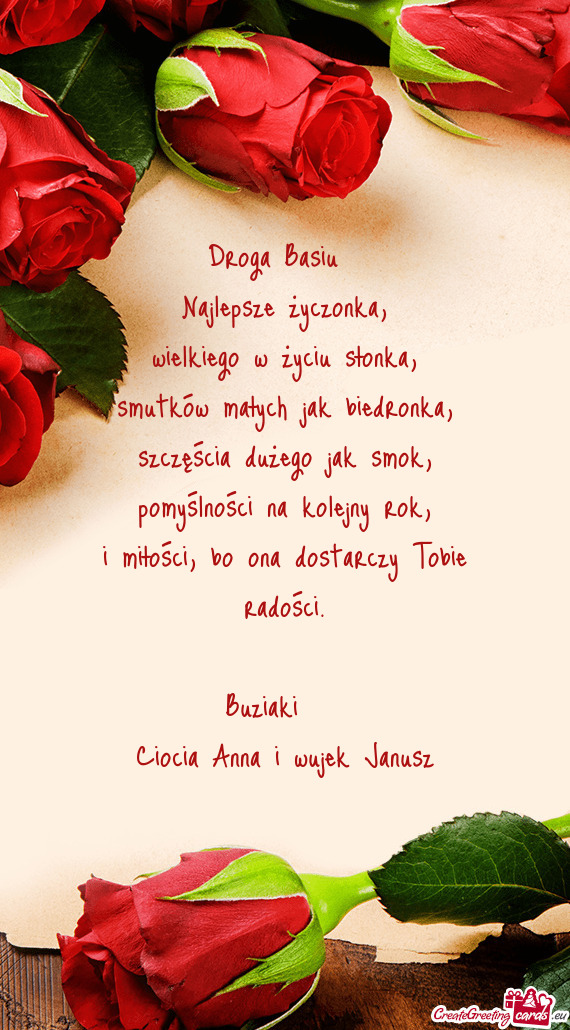 Droga Basiu
Najlepsze życzonka,
wielkiego w życiu słonka,
smutków małych jak biedronka,
szczęścia dużego jak smok,
pomyślności na kolejny rok,
i miłości, bo ona dostarczy Tobie
radości.
Buziaki
Ciocia Anna i wujek Janusz
CreateGreeting cards .eu